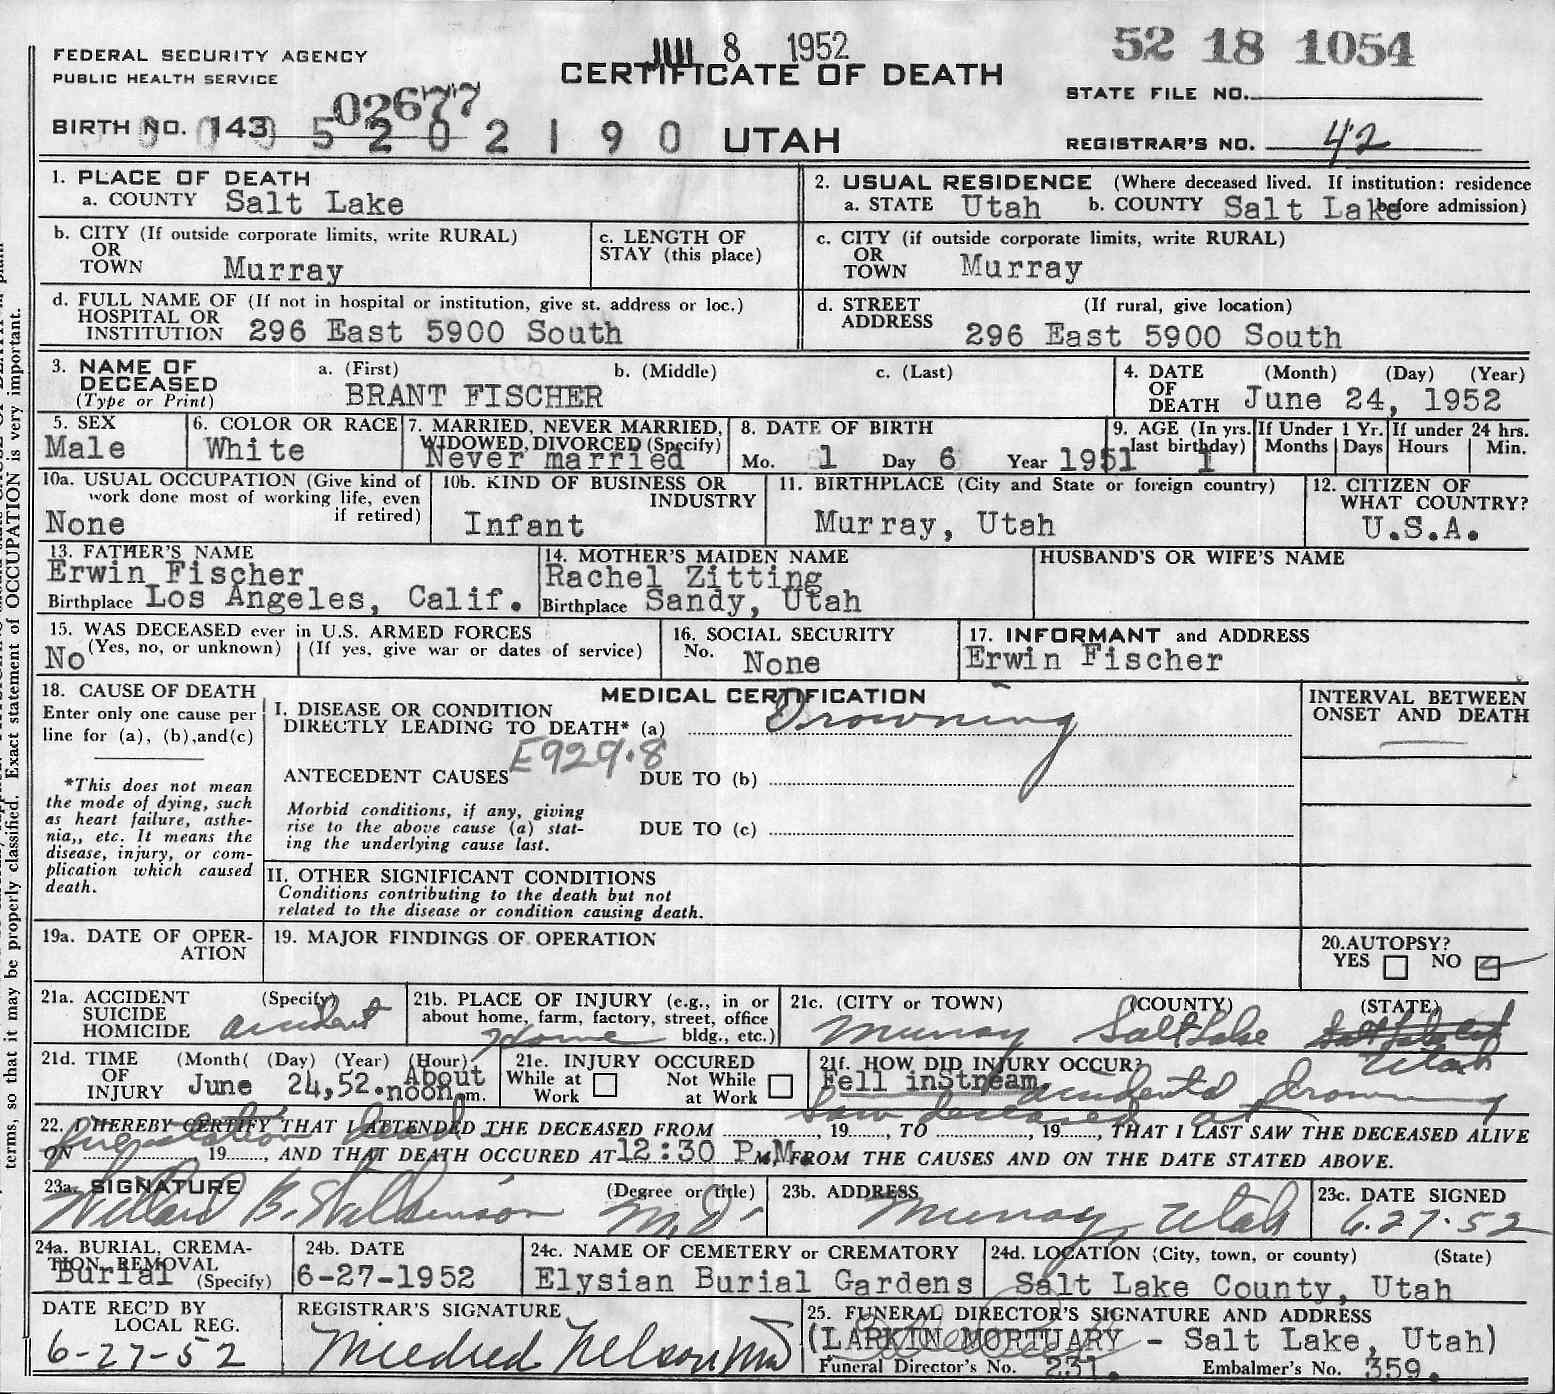 JUL 8 1952
52 18 1054
FEDERAL SECURITY AGENCY
PUBLIC HEALTH SERVICE
CERTIFICATE OF DEATH
STATE FILE NO.
02677
BIRTH NO. 143 5 2 0 2 1 9 0 UTAH
REGISTRAR'S NO. 42
1. PLACE OF DEATH
a. COUNTY Salt Lake
2. USUAL RESIDENCE (Where deceased lived. If institution: residence before admission)
a. STATE Utah b. COUNTY Salt Lake
b. CITY (If outside corporate limits, write RURAL)
OR
TOWN Murray
c. LENGTH OF
STAY (this place)
c. CITY (if outside corporate limits, write RURAL)
OR
TOWN Murray
d. FULL NAME OF (If not in hospital or institution, give st. address or loc.)
HOSPITAL OR
INSTITUTION 296 East 5900 South
d. STREET (If rural, give location)
ADDRESS 296 East 5900 South
3. NAME OF
DECEASED
(Type or Print)
a. (First) b. (Middle) c. (Last)
BRANT FISCHER
4. DATE (Month) (Day) (Year)
OF
DEATH June 24, 1952
5. SEX
Male
6. COLOR OR RACE
White
7. MARRIED, NEVER MARRIED,
WIDOWED, DIVORCED (Specify)
Never married
8. DATE OF BIRTH
Mo. 1 Day 6 Year 1951
9. AGE (In yrs.
last birthday) 1
If Under 1 Yr.
Months Days
If under 24 hrs.
Hours Min.
10a. USUAL OCCUPATION (Give kind of
work done most of working life, even
if retired)
None
10b. KIND OF BUSINESS OR
INDUSTRY
Infant
11. BIRTHPLACE (City and State or foreign country)
Murray, Utah
12. CITIZEN OF
WHAT COUNTRY?
U.S.A.
13. FATHER'S NAME
Erwin Fischer
Birthplace Los Angeles, Calif.
14. MOTHER'S MAIDEN NAME
Rachel Zitting
Birthplace Sandy, Utah
HUSBAND'S OR WIFE'S NAME
15. WAS DECEASED ever in U.S. ARMED FORCES
(Yes, no, or unknown) (If yes, give war or dates of service)
No
16. SOCIAL SECURITY
No. None
17. INFORMANT and ADDRESS
Erwin Fischer
18. CAUSE OF DEATH
Enter only one cause per
line for (a), (b), and (c)
*This does not mean
the mode of dying, such
as heart failure, asthe-
nia,, etc. It means the
disease, injury, or com-
plication which caused
death.
MEDICAL CERTIFICATION
I. DISEASE OR CONDITION
DIRECTLY LEADING TO DEATH* (a) Drowning
E929.8
ANTECEDENT CAUSES DUE TO (b)
Morbid conditions, if any, giving
rise to the above cause (a) stat-
ing the underlying cause last.
DUE TO (c)
II. OTHER SIGNIFICANT CONDITIONS
Conditions contributing to the death but not
related to the disease or condition causing death.
INTERVAL BETWEEN
ONSET AND DEATH
19a. DATE OF OPER-
ATION
19. MAJOR FINDINGS OF OPERATION
20. AUTOPSY?
YES NO
21a. ACCIDENT (Specify)
SUICIDE
HOMICIDE accident
21b. PLACE OF INJURY (e.g., in or
about home, farm, factory, street, office
bldg., etc.)
Home
21c. (CITY or TOWN) (COUNTY) (STATE)
Murray Salt Lake Utah
21d. TIME (Month( (Day) (Year) (Hour)
OF
INJURY June 24,52. About noon m.
21e. INJURY OCCURED
While at Work Not While at Work
21f. HOW DID INJURY OCCUR?
Fell in Stream. accidental drowning
Saw deceased at
22. I HEREBY CERTIFY THAT I ATTENDED THE DECEASED FROM , 19 , TO , 19 , THAT I LAST SAW THE DECEASED ALIVE
ON 19 , AND THAT DEATH OCCURED AT 12:30 P.M. FROM THE CAUSES AND ON THE DATE STATED ABOVE.
23a. SIGNATURE (Degree or title)
Willard B. Wilkinson M.D.
23b. ADDRESS
Murray, Utah
23c. DATE SIGNED
6-27-52
24a. BURIAL, CREMA-
TION, REMOVAL
(Specify)
Burial
24b. DATE
6-27-1952
24c. NAME OF CEMETERY or CREMATORY
Elysian Burial Gardens
24d. LOCATION (City, town, or county) (State)
Salt Lake County, Utah
DATE REC'D BY
LOCAL REG.
6-27-52
REGISTRAR'S SIGNATURE
Mildred Nelson
25. FUNERAL DIRECTOR'S SIGNATURE AND ADDRESS
(LARKIN MORTUARY - Salt Lake, Utah)
Funeral Director's No. 231. Embalmer's No. 359.
terms, so that it may be properly classified. Exact statement of OCCUPATION is very important.